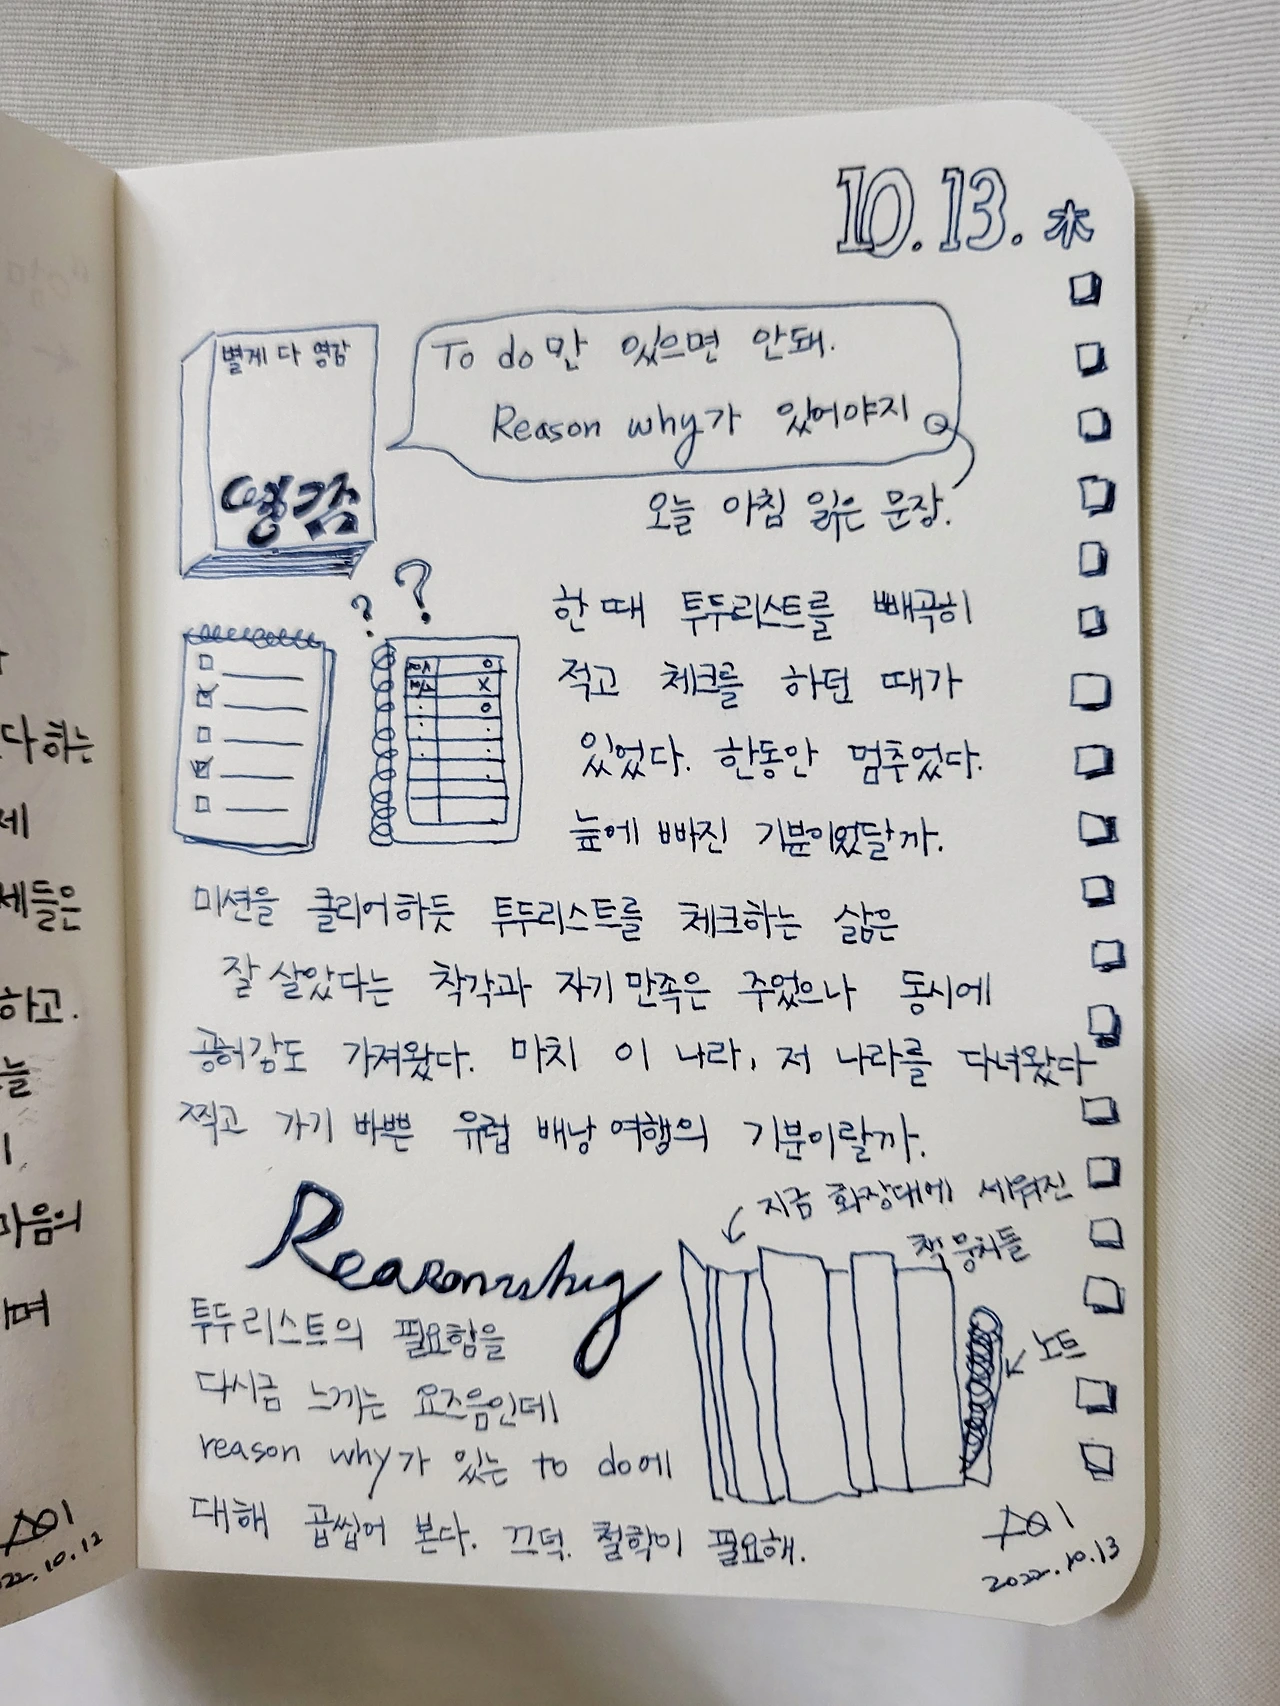 10.13. 木
별게 다 영감
영감
To do만 있으면 안돼.
Reason why가 있어야지
오늘 아침 읽은 문장.
? ?
한때 투두리스트를 빼곡히
적고 체크를 하던 때가
있었다. 한동안 멈추었다.
늪에 빠진 기분이었달까.
미션을 클리어하듯 투두리스트를 체크하는 삶은
잘 살았다는 착각과 자기만족은 주었으나 동시에
공허감도 가져왔다. 마치 이 나라, 저 나라를 다녀왔다
찍고 가기 바쁜 유럽 배낭여행의 기분이랄까.
지금 화장대에 세워진
책 뭉치들
Reason why
노트
투두리스트의 필요함을
다시금 느끼는 요즈음인데
reason why가 있는 to do에
대해 곱씹어 본다. 끄덕. 철학이 필요해.
2022.10.13
다하는
세
세들은
하고.
늘
마음의
며
22.10.12